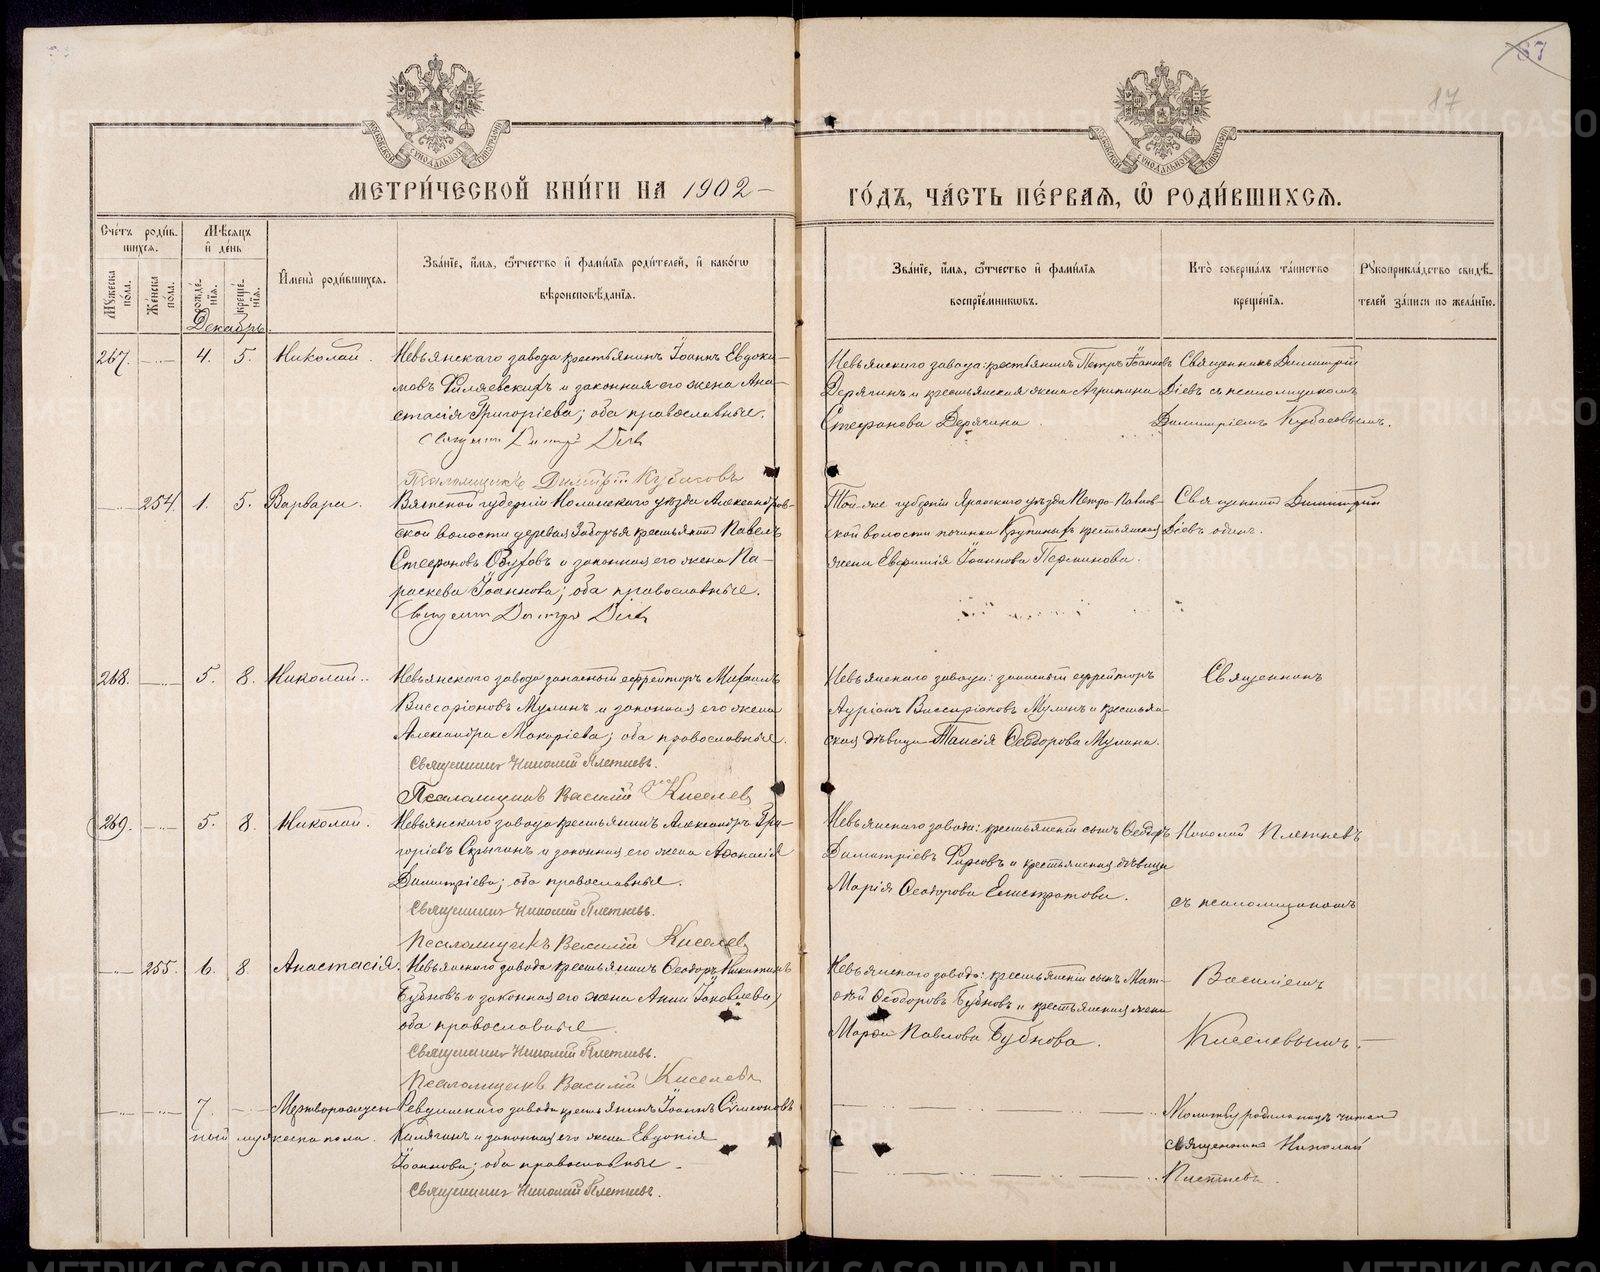 87
87
МОСКОВСКОЙ СѴНОДАЛЬНОЙ ТИПОГРАФИИ
МОСКОВСКОЙ СѴНОДАЛЬНОЙ ТИПОГРАФИИ
МЕТРИ́ЧЕСКОЙ КНИ́ГИ НА 1902 –
ГО́ДЪ, ЧА́СТЬ ПЕ́РВАѦ, Ѽ РОДИ́ВШИХСѦ.
Сче́тъ роди́вшихсѧ.
Мꙋ́жеска по́ла.
Же́нска по́ла.
Мѣ́сѧцъ и҆ де́нь
рожде́нїѧ.
креще́нїѧ.
Декабрь
И҆мена̀ роди́вшихсѧ.
Зва́нїе, и҆́мѧ, ѻ҆́тчество и҆ фами́лїѧ роди́телей, и҆ како́гѡ
вѣроисповѣ́данїѧ.
Зва́нїе, и҆́мѧ, ѻ҆́тчество и҆ фами́лїѧ
воспрїе́мникѡвъ.
Кто̀ соверша́лъ та́инство
креще́нїѧ.
Рꙋкоприкла́дство свидѣ́-
телей за́писи по жела́нїю.
267. 4. 5. Николай.
Невьянскаго завода крестьянинъ Іоаннъ Евдоки-
мовъ Филяевскихъ и законная его жена Ана-
стасія Григоріева; оба православные.
Псаломщикъ Димитрій Кубасовъ
Невьянскаго завода: крестьянинъ Петръ Іоанновъ
Дерягинъ и крестьянская жена Агрипина
Стефанова Дерягина.
Священникъ Димитрій
Діевъ съ псаломщикомъ
Димитріемъ Кубасовымъ.
254. 1. 5. Варвара.
Вятской губерніи Нолинскаго уѣзда Александров-
ской волости деревни Заборья крестьянинъ Павелъ
Стефановъ и законная его жена Па-
раскева Іоаннова; оба православные.
Той-же губерніи Яранскаго уѣзда Петро-Павлов-
ской волости починка крестьянская
жена Евфимія Іоаннова Перминова.
Священникъ Димитрій
Діевъ одинъ.
268. 5. 8. Николай.
Невьянскаго завода запасный ефрейторъ Михаилъ
Виссаріоновъ Мулинъ и законная его жена
Александра Макаріева; оба православные.
Священникъ Николай Плетневъ.
Псаломщикъ Василій Киселевъ
Невьянскаго завода: запасный ефрейторъ
Виссаріоновъ Мулинъ и крестьян-
ская дѣвица Таисія Ѳеодорова Мулина.
Священникъ
269. 5. 8. Николай.
Невьянскаго завода крестьянинъ Александръ Гри-
горіевъ Скрыгинъ и законная его жена Аѳанасія
Димитріева; оба православные.
Священникъ Николай Плетневъ.
Псаломщикъ Василій Киселевъ
Невьянскаго завода: крестьянскій сынъ Ѳеодоръ
Димитріевъ Фирсовъ и крестьянская дѣвица
Марія Ѳеодорова Елистратова.
Николай Плетневъ
съ псаломщикомъ
255. 6. 8. Анастасія.
Невьянскаго завода крестьянинъ Ѳеодоръ Никитинъ
Бубновъ и законная его жена Анна Іаковлева;
оба православные.
Священникъ Николай Плетневъ.
Псаломщикъ Василій Киселевъ
Невьянскаго завода: крестьянскій сынъ Мат-
ѳей Ѳеодоровъ Бубновъ и крестьянская жена
Марѳа Павлова Бубнова.
Василіемъ
Киселевымъ.
7. Мертворожден-
ный мужеска пола.
Ревдинскаго завода крестьянинъ Іоаннъ Симеоновъ
Калягинъ и законная его жена Евдокія
Іоаннова; оба православные.
Священникъ Николай Плетневъ.
Молитву родильницѣ читалъ
священникъ Николай
Плетневъ.
METRIKI.GASO-URAL.RU